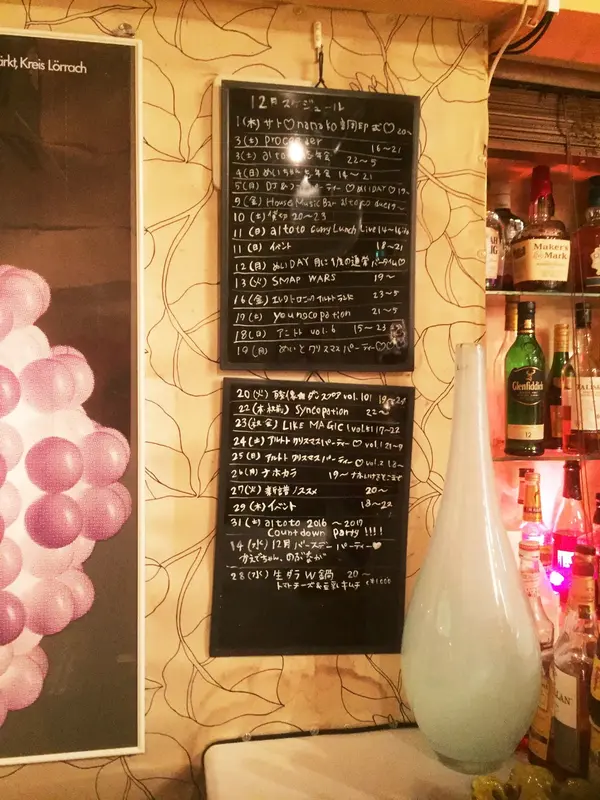 ärkt, Kreis Lörrach
12月スケジュール
1 (木) サト♡nanako 20~
3 (土) 16~21
3 (土) altoto 忘年会 22~5
4 (日) めいちゃん忘年会 14~21
5 (月) ♡めいDAY♡19~
9 (金) House Music Bar altoto due 19~
10 (土) 貸切 20~23
11 (日) altoto curry Lunch Live 14~16
11 (日) イベント 18~21
12 (月) めいDAY 月に1度の通常
13 (火) SMAP WARS 19~
16 (金) エレクトロニックアルトトランド 23~5
17 (土) youncopation 21~5
18 (日) アニト vol.6 15~23
19 (月) めいとクリスマスパーティー♡♡
20 (火) vol.10!
22 (木 祝前) Syncopation 22~
23 (祝 金) LIKE MAGIC (vol.8) 17~22
24 (土) アルトト クリスマスパーティー♡ vol.1 21~9
25 (日) アルトト クリスマスパーティー♡ vol.2 18~
26 (月) ナホカラ 19~
27 (火) ノススメ 20~
29 (木) イベント 18~22
31 (土) altoto 2016~2017
Countdown party!!!!
14 (水) 12月 バースデーパーティー♥
かえでちゃん、のぶなが
28 (水) 生ダラW鍋 20~
トマトチーズ&豆乳キムチ ¥1000
Maker's
Mark
Glenfiddich
12